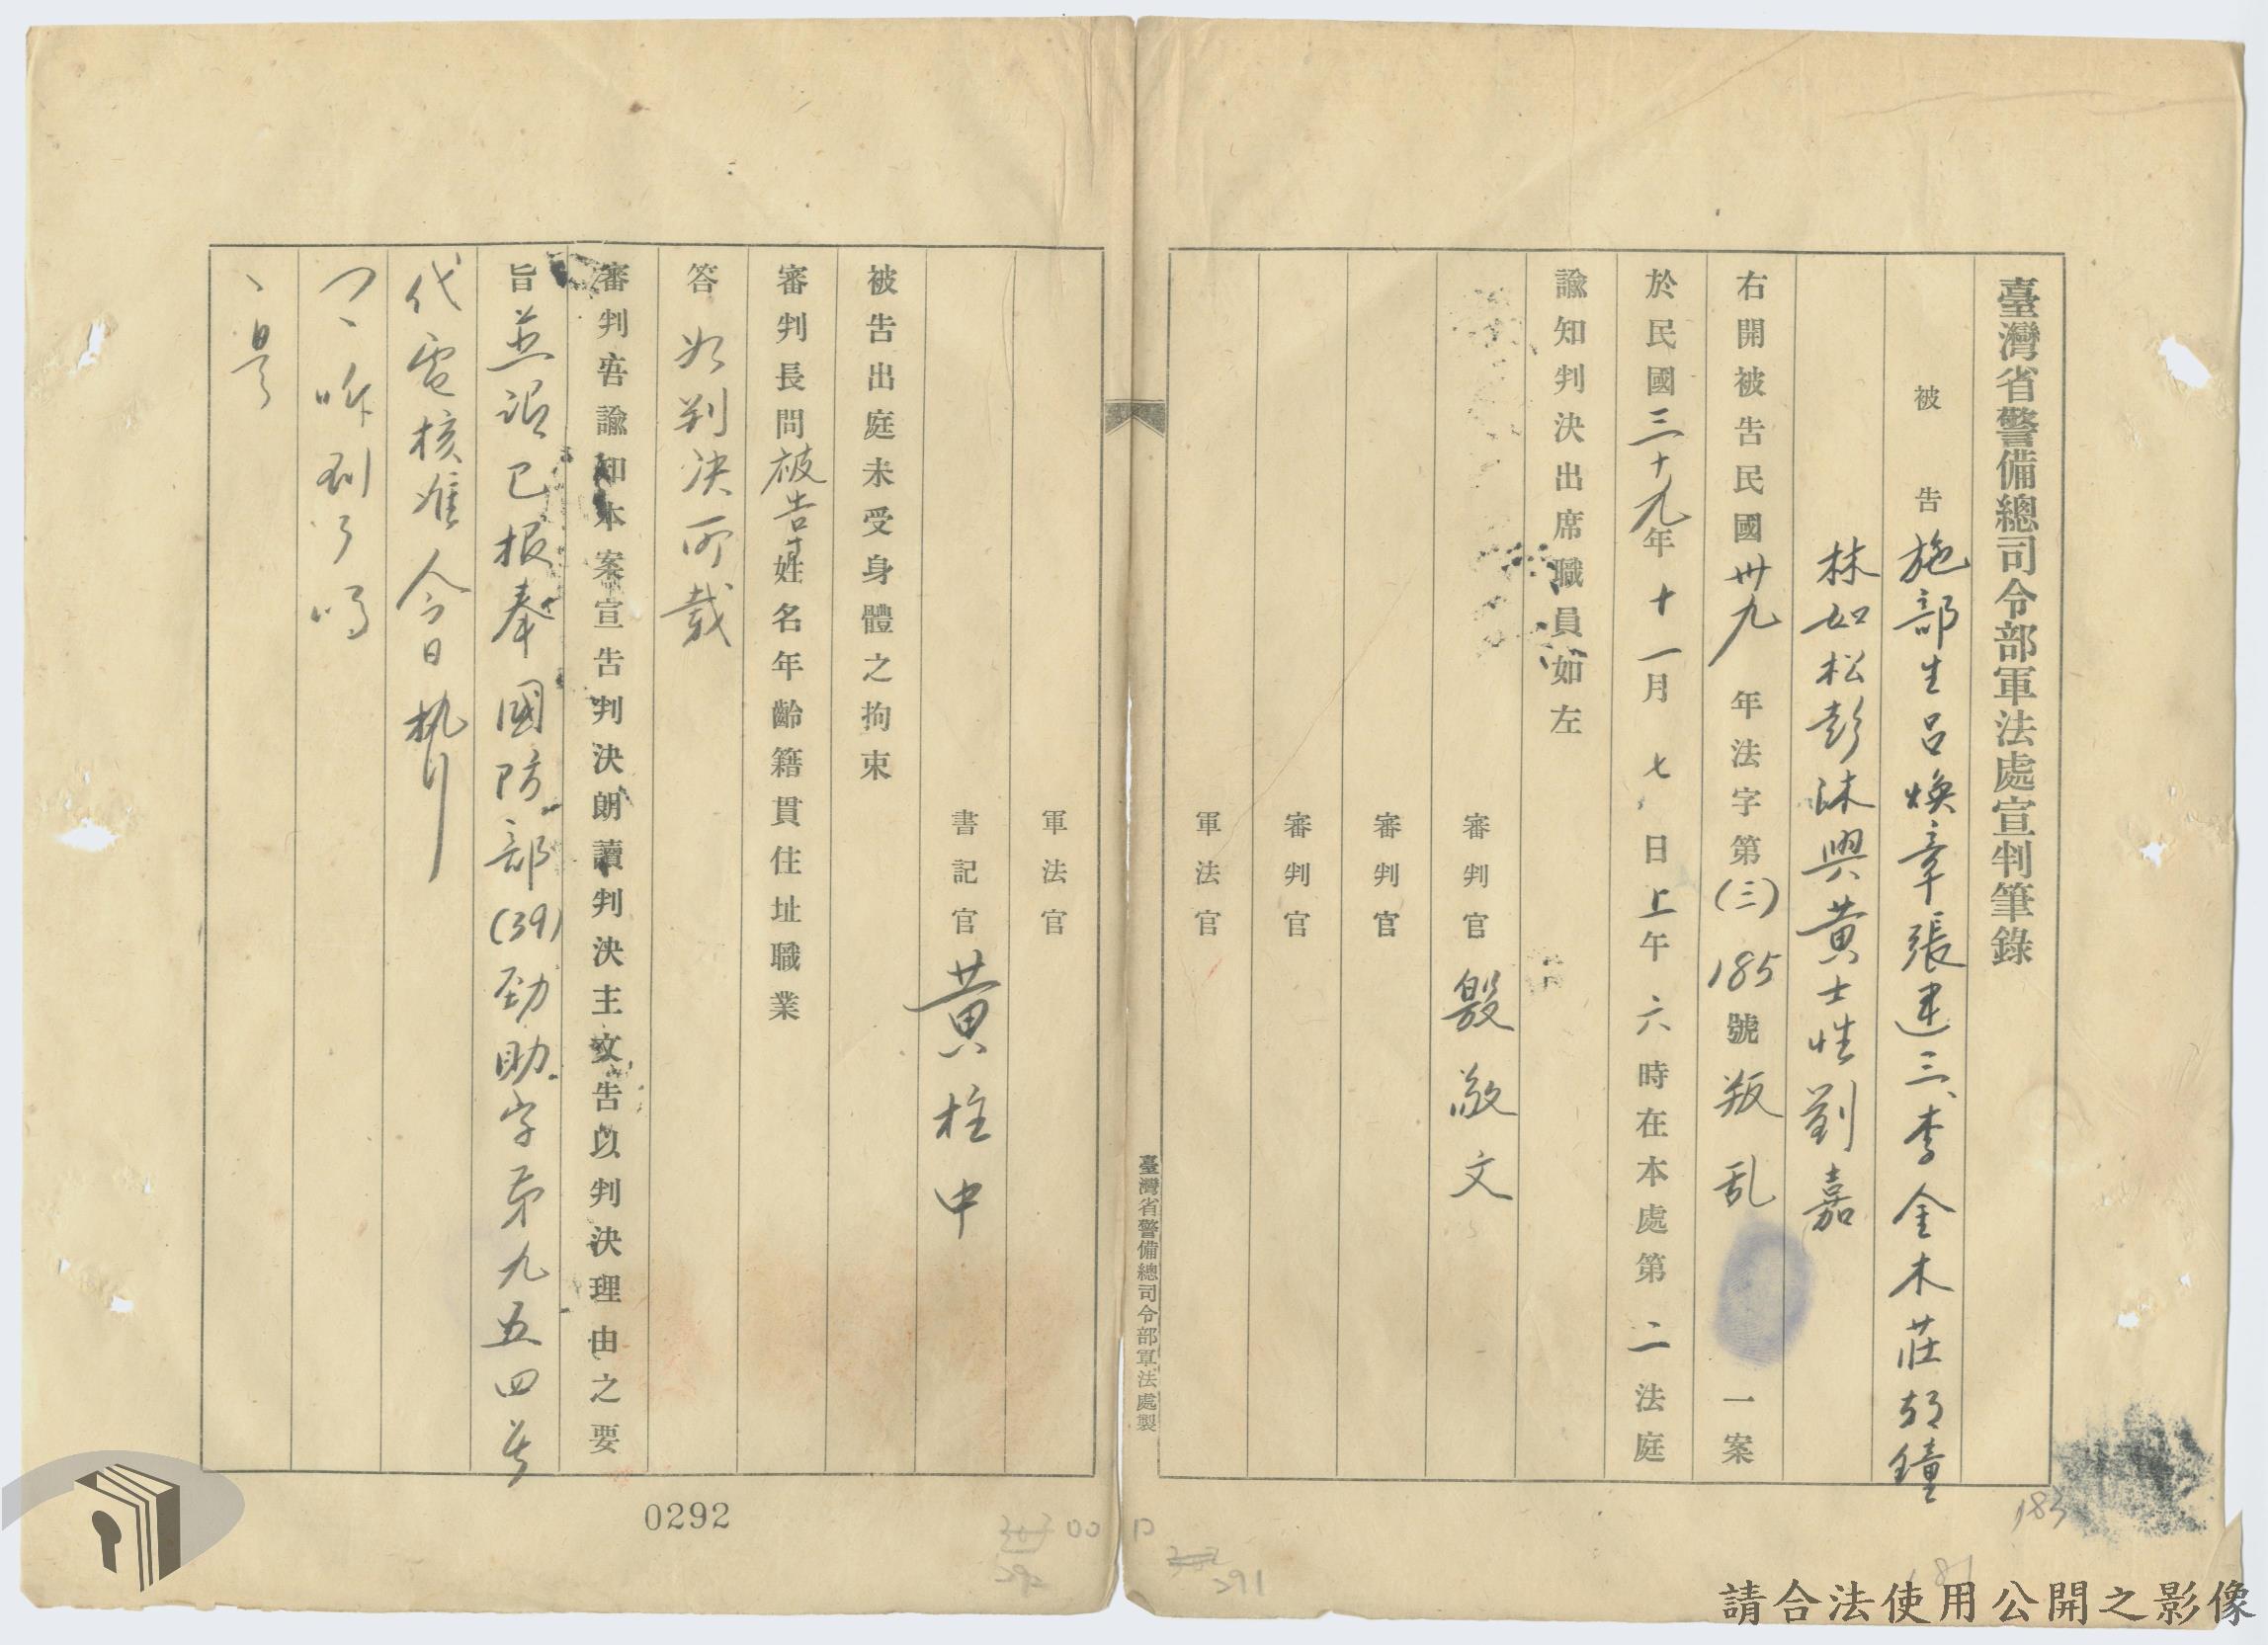 臺灣省警備總司令部軍法處宣判筆錄
被告施部生呂煥章張建三李金木莊朝鐘
林如松彭沐興黃士性劉嘉
右開被告民國卅九年法字第(三)185號叛乱一案
於民國三十九年十一月七日上午六時在本處第二法庭
諭知判決出席職員如左
審判官殷敬文
審判官
審判官
軍法官
臺灣省警備總司令部軍法處製
軍法官
書記官黃柱中
被告出庭未受身體之拘束
審判長問被告等姓名年齡籍貫住址職業
答如判決所載
審判官諭知本案宣告判決朗讀判決主文告以判決理由之要
旨並謂已報奉國防部(39)勁助字第九五四号
代電核准今日執行
問、听到了嗎
、是
0292
291
292
183
請合法使用公開之影像